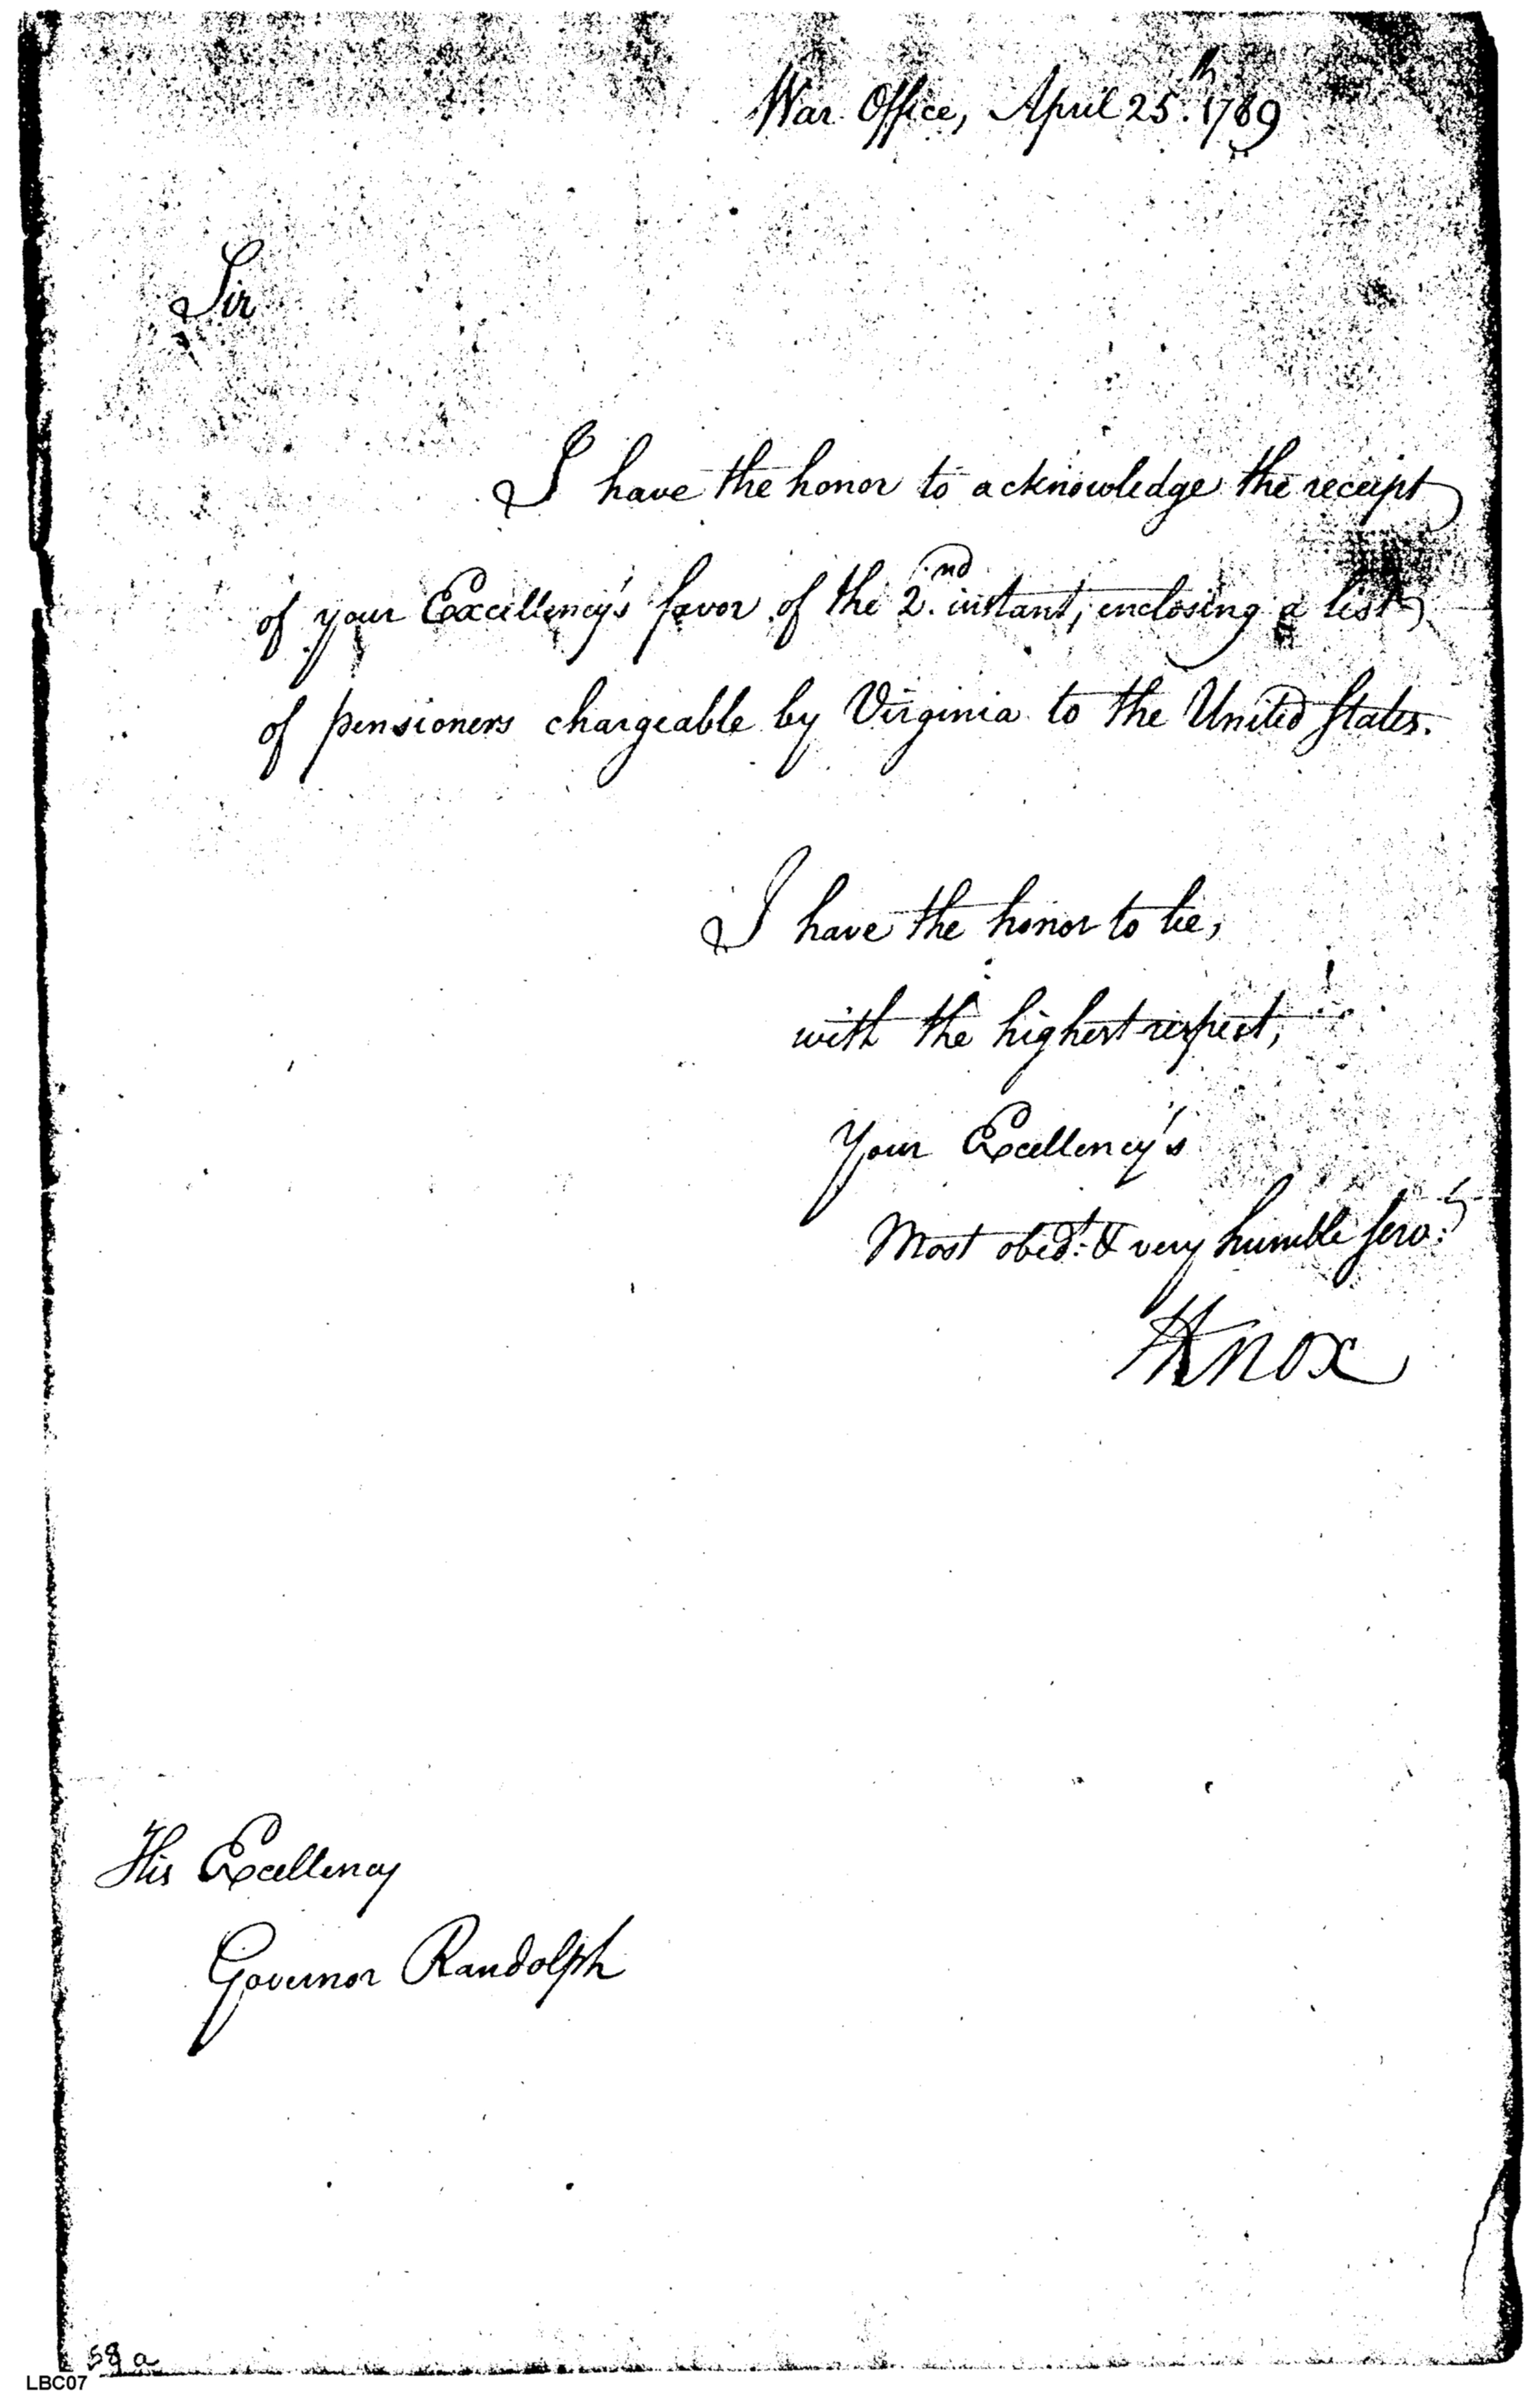 War Office, April 25.th 1789
Sir
I have the honor to acknowledge the receipt
of your Excellency's favor of the 2.nd instant, enclosing a list
of pensioners chargeable by Virginia to the United States.
I have the honor to be,
with the highest respect,
Your Excellency's
Most obed.t & very humble serv.t
HKnox
His Excellency
Governor Randolph
58 a
LBC07